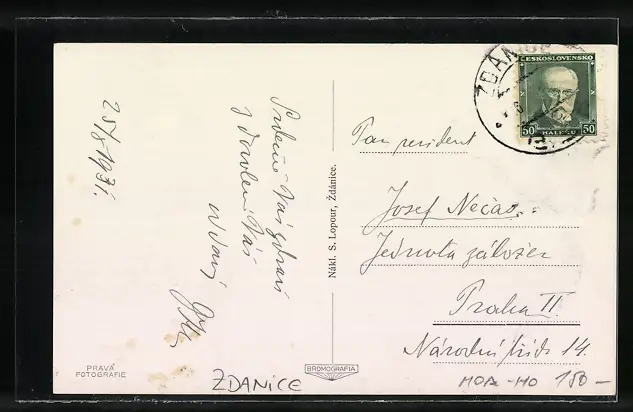 ŽDÁNICE
ČESKOSLOVENSKO
50 HALÉŘŮ 50
25/8 1931.
Srdečně Vás zdraví
z dovolené Váš
oddaný
Nákl. S. Lopour, Ždánice.
Pan president
Josef Nečas
Jednota záložen
Praha II.
Národní třída 14.
PRAVÁ
FOTOGRAFIE
BROMOGRAFIA
ŽDANICE
MOR-HO 180-